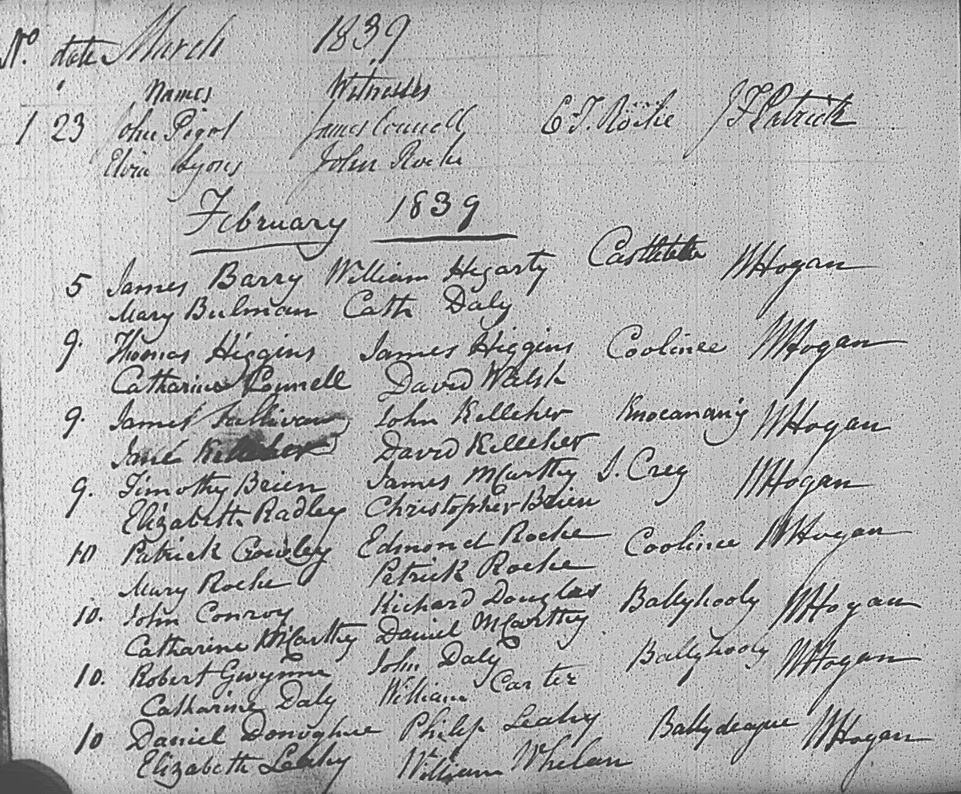 No. date March 1839
Names Witnesses
1 23 John Pigot James Connell E. T. Roche J Fitzpatrick
Eliza Lyons John Roche
February 1839
5 James Barry William Hegarty W Hogan
Mary Bulman Cath Daly
9. Thomas Higgins James Higgins Coolinee W Hogan
Catharine Connell David Walsh
9. James Sullivan John Kelleher Knocananig W Hogan
Jane Kelleher David Kelleher
9. Timothy Brien James McCarthy I. Creg W Hogan
Elizabeth Radley Christopher Brien
10 Patrick Crowley Edmond Roche Coolinee W Hogan
Mary Roche Patrick Roche
10. John Conroy Richard Douglas Ballyhooly W Hogan
Catharine McCarthy Daniel McCarthy
10. Robert Gwynne John Daly Ballyhooly W Hogan
Catharine Daly William Carter
10 Daniel Donoghue Philip Leahy Ballydeague W Hogan
Elizabeth Leahy William Whelan